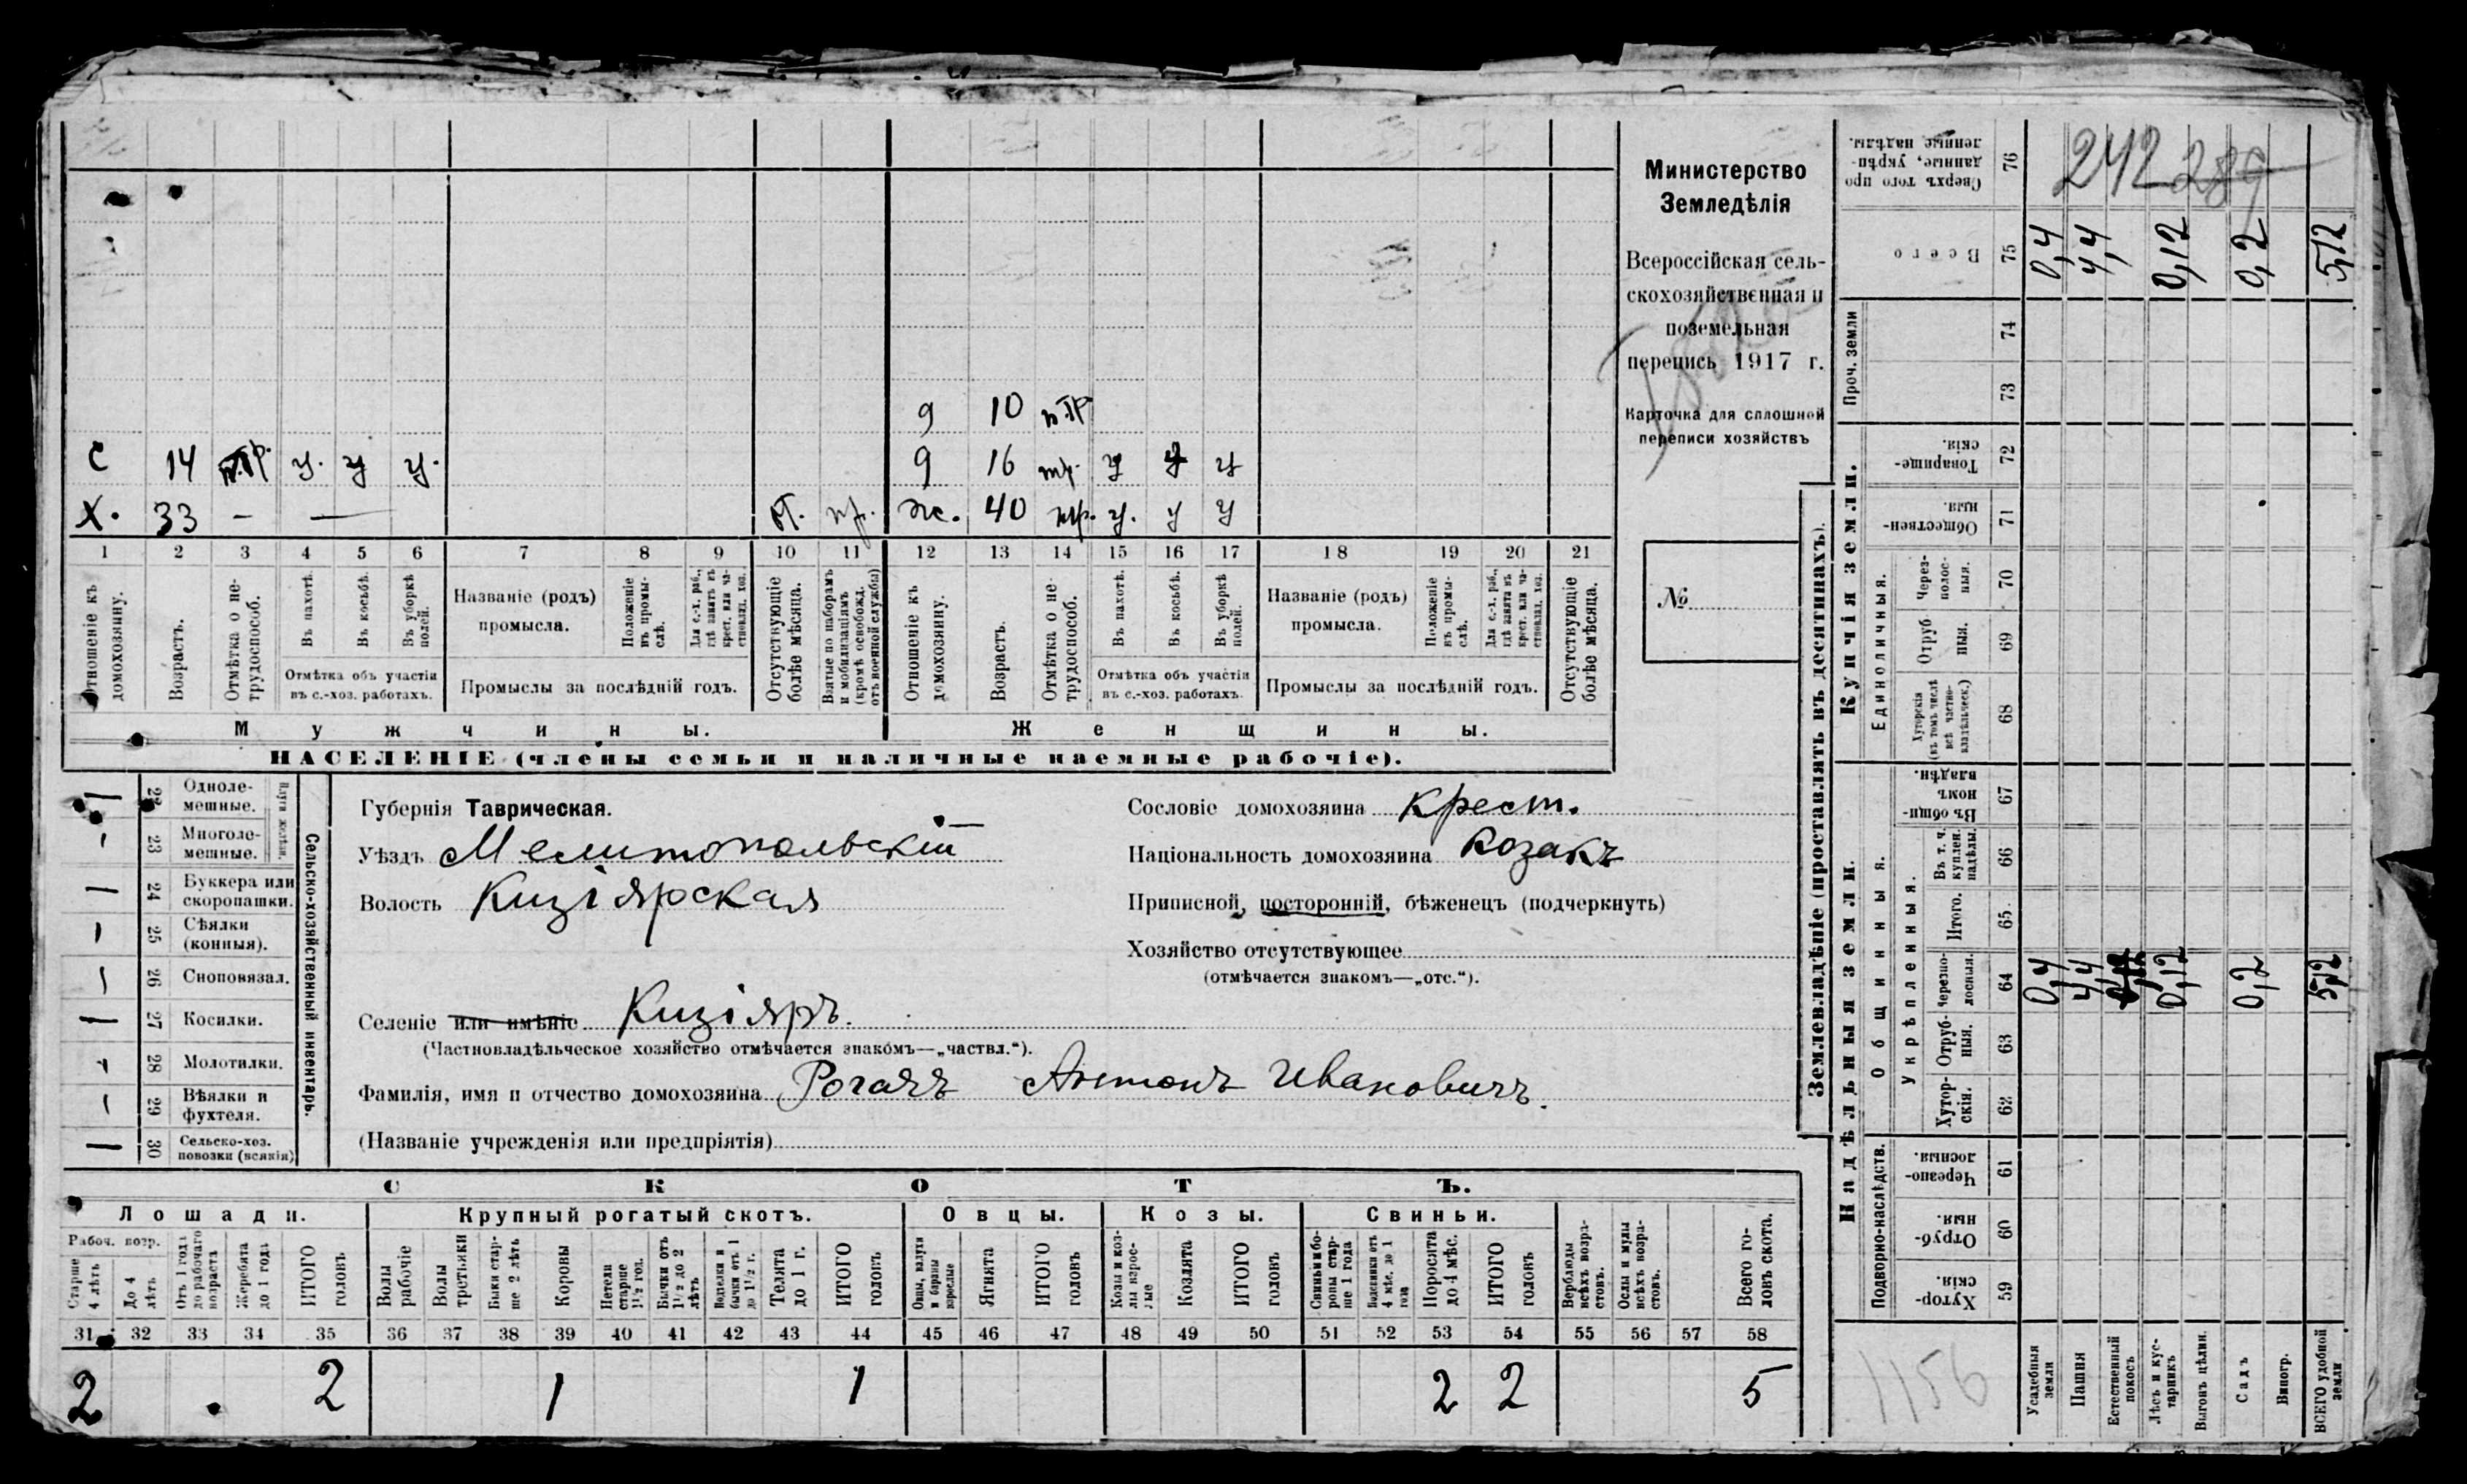 Министерство
Земледѣлія
Всероссійская сель-
скохозяйственная и
поземельная
перепись 1917 г.
Карточка для сплошной
переписи хозяйствъ
№
9 10 п.тр
С 14 п.тр. у. у у. 9 16 тр. у у у
Х. 33 — — от. пр. ж. 40 тр. у. у у
1 2 3 4 5 6 7 8 9 10 11 12 13 14 15 16 17 18 19 20 21
Отношеніе къ домохозяину.
Возрастъ.
Отмѣтка о не-трудоспособ.
Въ пахотѣ.
Въ косьбѣ.
Въ уборкѣ полей.
Отмѣтка объ участіи
въ с.-хоз. работахъ.
Названіе (родъ)
промысла.
Положеніе въ промы-слѣ.
Для с.-х. раб., гдѣ занятъ въ крест. или ча-стновлад. хоз.
Промыслы за послѣдній годъ.
Отсутствующіе болѣе мѣсяца.
Взятые по наборамъ и мобилизаціямъ (кромѣ освобожд. отъ военной службы)
Отношеніе къ домохозяину.
Возрастъ.
Отмѣтка о не-трудоспособ.
Въ пахотѣ.
Въ косьбѣ.
Въ уборкѣ полей.
Отмѣтка объ участіи
въ с.-хоз. работахъ.
Названіе (родъ)
промысла.
Положеніе въ промы-слѣ.
Для с.-х. раб., гдѣ занята въ крест. или ча-стновлад. хоз.
Промыслы за послѣдній годъ.
Отсутствующіе болѣе мѣсяца.
Мужчины. Женщины.
НАСЕЛЕНІЕ (члены семьи и наличные наемные рабочіе).
Сельско-хозяйственный инвентарь.
Плуги желѣзн.
— 22 Одноле-мешные.
— 23 Многоле-мешные.
— 24 Буккера или скоропашки.
— 25 Сѣялки (конныя).
— 26 Сноповязал.
— 27 Косилки.
— 28 Молотилки.
— 29 Вѣялки и фухтеля.
— 30 Сельско-хоз. повозки (всякія)
Губернія Таврическая.
Уѣздъ Мелитопольскій
Волость Кизіярская
Селеніе или имѣніе Кизіяръ.
(Частновладѣльческое хозяйство отмѣчается знакомъ—„частвл.“).
Фамилія, имя и отчество домохозяина Рогачъ Антонъ Ивановичъ.
(Названіе учрежденія или предпріятія)
Сословіе домохозяина крест.
Національность домохозяина козакъ
Приписной, посторонній, бѣженецъ (подчеркнуть)
Хозяйство отсутствующее
(отмѣчается знакомъ—„отс.“).
СКОТЪ.
Лошади. Крупный рогатый скотъ. Овцы. Козы. Свиньи.
Рабоч. возр.
Старше 4 лѣтъ
До 4 лѣтъ
Отъ 1 года до рабочаго возраста
Жеребята до 1 года
ИТОГО головъ
Волы рабочіе
Волы третьяки
Быки стар-ше 2 лѣтъ
Коровы
Нетели старше 1½ год.
Бычки отъ 1½ до 2 лѣтъ
Телки и бычки отъ 1 до 1½ г.
Телята до 1 г.
ИТОГО головъ
Овцы, валухи и бараны взрослые
Ягнята
ИТОГО головъ
Козы и коз-лы взрос-лые
Козлята
ИТОГО головъ
Свиньи и бо-ровы стар-ше 1 года
Подсвинки отъ 4 мѣс. до 1 года
Поросята до 4 мѣс.
ИТОГО головъ
Верблюды всѣхъ возра-стовъ.
Ослы и мулы всѣхъ возра-стовъ.
Всего го-ловъ скота.
31 32 33 34 35 36 37 38 39 40 41 42 43 44 45 46 47 48 49 50 51 52 53 54 55 56 57 58
2 2 1 1 2 2 5
Землевладѣніе (проставлять въ десятинахъ).
Надѣльныя земли. Купчія земли. Проч. земли
Подворно-наслѣдств.
Общинныя.
Укрѣпленныя.
Единоличныя.
Хутор-скія. 59
Отруб-ныя. 60
Черезпо-лосныя. 61
Хутор-скія. 62
Отруб-ныя. 63
Черезпо-лосныя. 64
Итого. 65
Въ т. ч. куплен. надѣлы. 66
Въ общи-номъ владѣн. 67
Хуторскія (въ томъ числѣ всѣ частно-владѣльческ.) 68
Отруб-ныя. 69
Через-полос-ныя. 70
Обществен-ныя. 71
Товарище-скія. 72
73
74
Всего 75
Сверхъ того про-данные, укрѣп-ленные надѣлы. 76
242 289
0,4 4,4 0,12 0,2 5,12
0,4 4,4 0,12 0,2 5,12
Усадебныя земли
Пашня
Естественный покосъ
Лѣсъ и кус-тарникъ
Выгонъ цѣлин.
Садъ
Виногр.
ВСЕГО удобной земли
1156